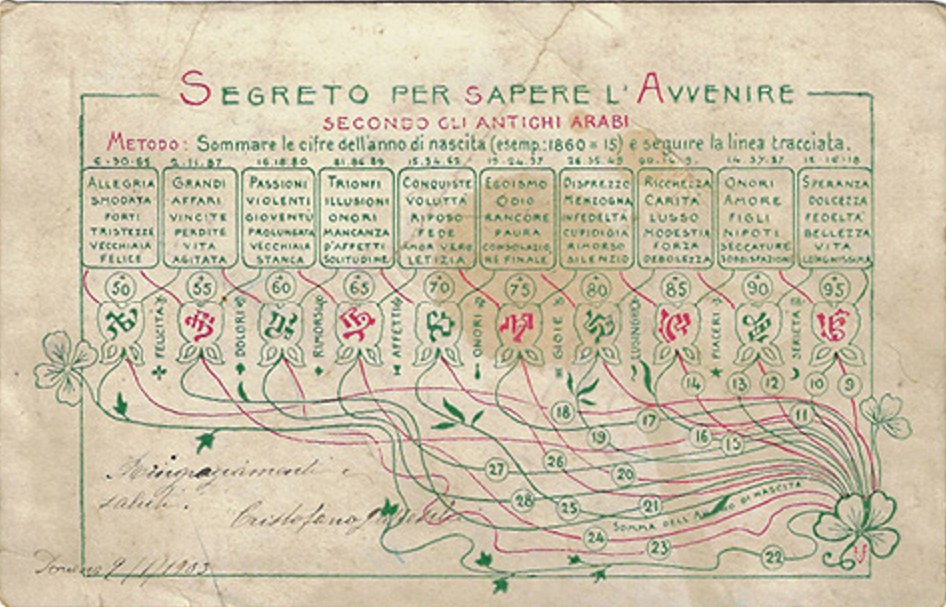 SEGRETO PER SAPERE L'AVVENIRE
SECONDO GLI ANTICHI ARABI
METODO: Sommare le cifre dell'anno di nascita (esemp.: 1860 = 15) e seguire la linea tracciata.
ALLEGRIA
SMODATA
FORTI
TRISTEZZE
VECCHIAIA
FELICE
GRANDI
AFFARI
VINCITE
PERDITE
VITA
AGITATA
PASSIONI
VIOLENTI
GIOVENTÙ
PROLUNGATA
VECCHIAIA
STANCA
TRIONFI
ILLUSIONI
ONORI
MANCANZA
D'AFFETTI
SOLITUDINE
CONQUISTE
VOLUTTÀ
RIPOSO
FEDE
AMOR VERO
LETIZIA
EGOISMO
ODIO
RANCORE
PAURA
CONSOLAZIO
NE FINALE
DISPREZZO
MENZOGNA
INFEDELTÀ
CUPIDIGIA
RIMORSO
SILENZIO
RICCHEZZA
CARITÀ
LUSSO
MODESTIA
FORZA
DEBOLEZZA
ONORI
AMORE
FIGLI
NIPOTI
SECCATURE
SODDISFAZIONI
SPERANZA
DOLCEZZA
FEDELTÀ
BELLEZZA
VITA
LUNGHISSIMA
50 55 60 65 70 75 80 85 90 95
FELICITÀ
DOLORI
RIMORSI
AFFETTI
ONORI
GIOIE
PIACERI
14 13 12 10 9
18 17 11
19 16 15
27 26 20
28 25 21
SOMMA DELL'ANNO DI NASCITA
24 23 22
Ringraziamenti e
saluti.
Cristofano
9/1/1903